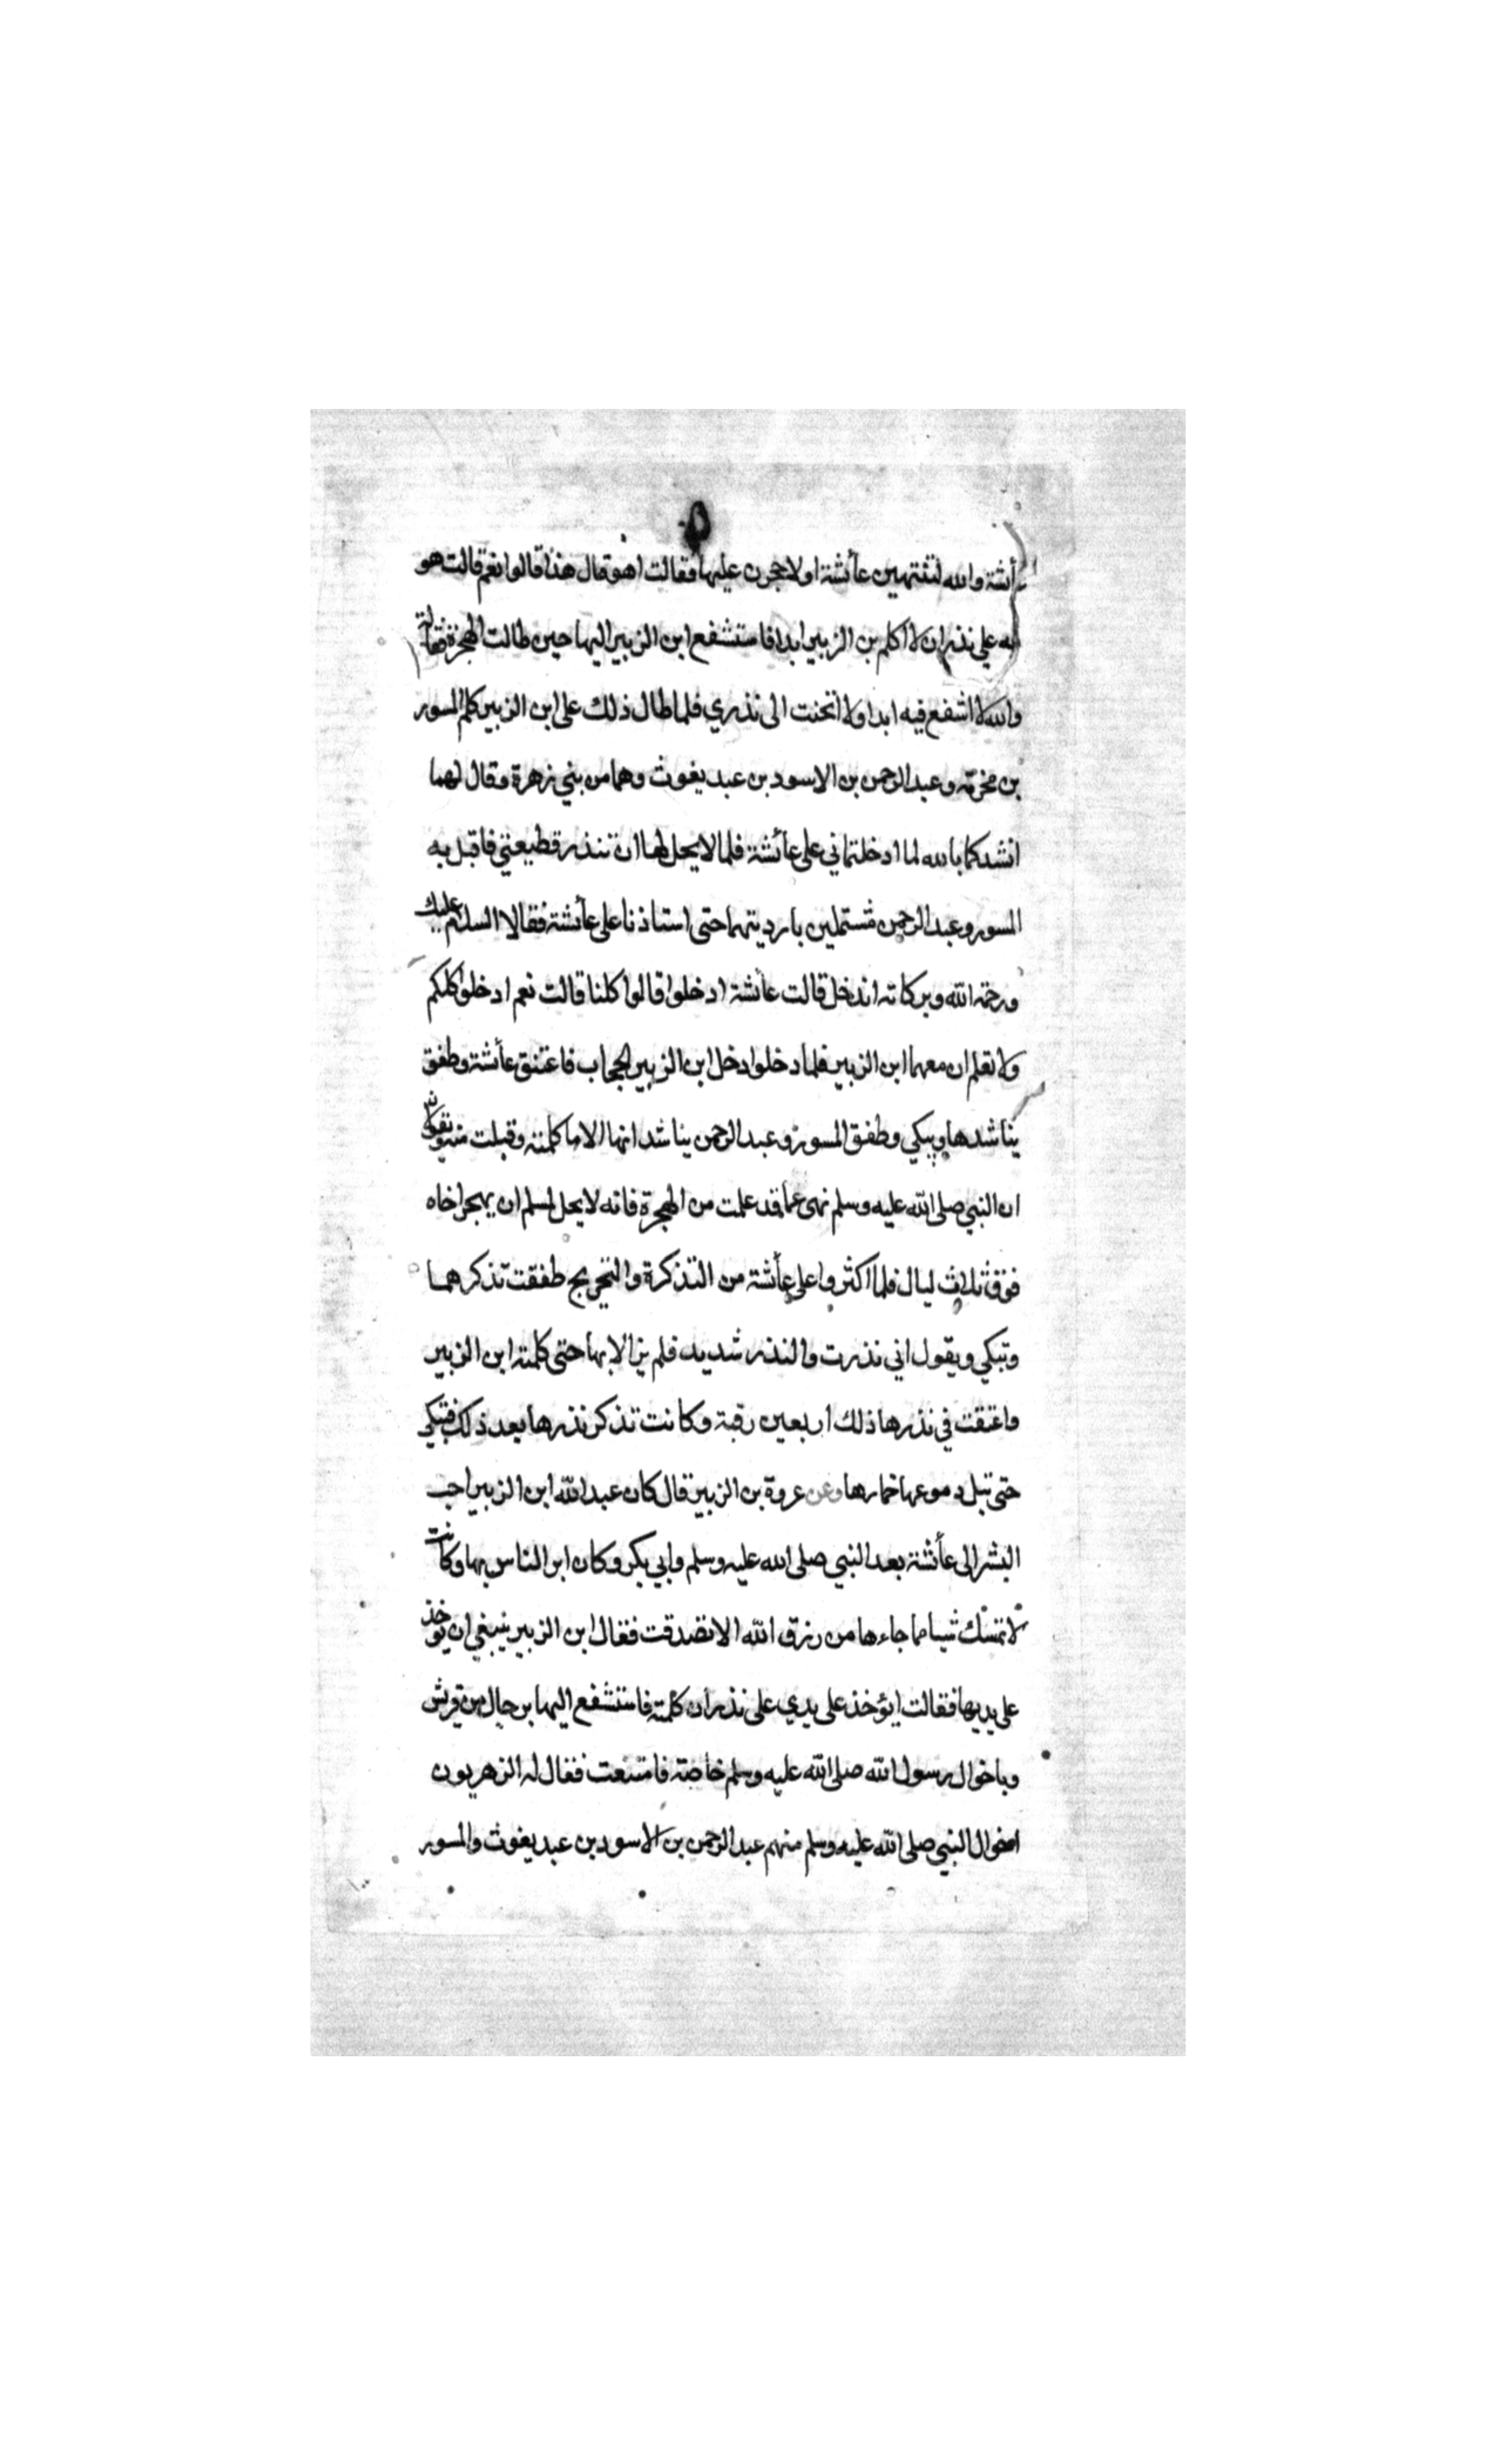 عائشة والله لتنتهين عائشة او لاحجرن عليها فقالت اهو قال هذا قالوا نعم قالت هو
لله علي نذر ان لا اكلم بن الزبير ابدا فاستشفع ابن الزبير اليها حين طالت الهجرة فقالت
والله لا اشفع فيه ابدا ولا اتحنت الى نذري فلما طال ذلك على ابن الزبير كلم المسور
بن مخرمة وعبد الرحمن بن الاسود بن عبد يغوث وهما من بني زهرة وقال لهما
انشدكما بالله لما ادخلتماني على عائشة فلما لا يحل لها ان تنذر قطيعتي فاقبل به
المسور وعبد الرحمن مشتملين بارديتهما حتى استاذنا على عائشة فقالا السلام عليك
ورحمة الله وبركاته اندخل قالت عائشة ادخلوا قالوا كلنا قالت نعم ادخلوا كلكم
ولا تعلم ان معهما ابن الزبير فلما دخلوا دخل ابن الزبير الحجاب فاعتنق عائشة وطفق
يناشدها ويبكي وطفق المسور وعبد الرحمن يناشدانها الا ما كلمته وقبلت منه ويقولان
ان النبي صلى الله عليه وسلم نهى عما قد علمت من الهجرة فانه لا يحل لمسلم ان يهجر اخاه
فوق ثلاث ليال فلما اكثروا على عائشة من التذكرة والتحريج طفقت تذكرهما
وتبكي ويقول اني نذرت والنذر شديد فلم يزالا بها حتى كلمته ابن الزبير
واعتقت في نذرها ذلك اربعين رقبة وكانت تذكر نذرها بعد ذلك فتبكي
حتى تبل دموعها خمارها وعن عروة بن الزبير قال كان عبد الله ابن الزبير احب
البشر الى عائشة بعد النبي صلى الله عليه وسلم وابي بكر وكان ابر الناس بها وكانت
لا تمسك شيا مما جاءها من رزق الله الا تصدقت فقال ابن الزبير ينبغي ان يوخذ
على يديها فقالت ايؤخذ على يدي على نذر ان كلمته فاستشفع اليها برجال من قريش
وباخوال رسول الله صلى الله عليه وسلم خاصة فامتنعت فقال له الزهريون
اخوال النبي صلى الله عليه وسلم منهم عبد الرحمن بن الاسود بن عبد يغوث والمسور